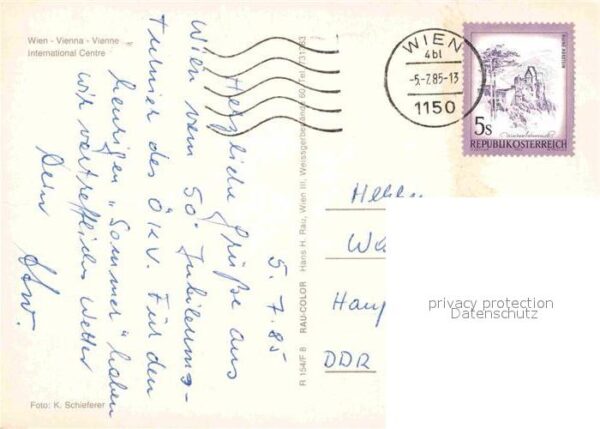 Wien - Vienna - Vienne
International Centre
WIEN
4bl
-5.-7.85-13
1150
5s
REPUBLIK ÖSTERREICH
5.7.85
Herzliche Grüße aus
Wien vom 50. Jubiläums-
turnier des ÖKV. Für den
heurigen „Sommer" haben
wir vortreffliches Wetter
Dein
R 154/F 8 RAU-COLOR Hans H. Rau, Wien III, Weissgerberlände 60, Tel. 731353
Foto: K. Schieferer
Herrn
Wa
Haup
DDR
privacy protection
Datenschutz